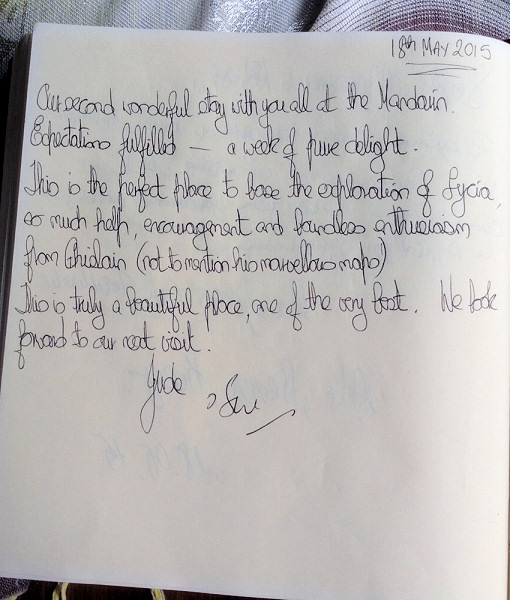 18th MAY 2015
Our second wonderful stay with you all at the Mandarin.
Expectations fulfilled — a week of pure delight.
This is the perfect place to base the exploration of Lycia,
so much help, encouragement and boundless enthusiasm
from Ghislain (not to mention his marvellous maps)
This is truly a beautiful place, one of the very best. We look
forward to our next visit.
Jude